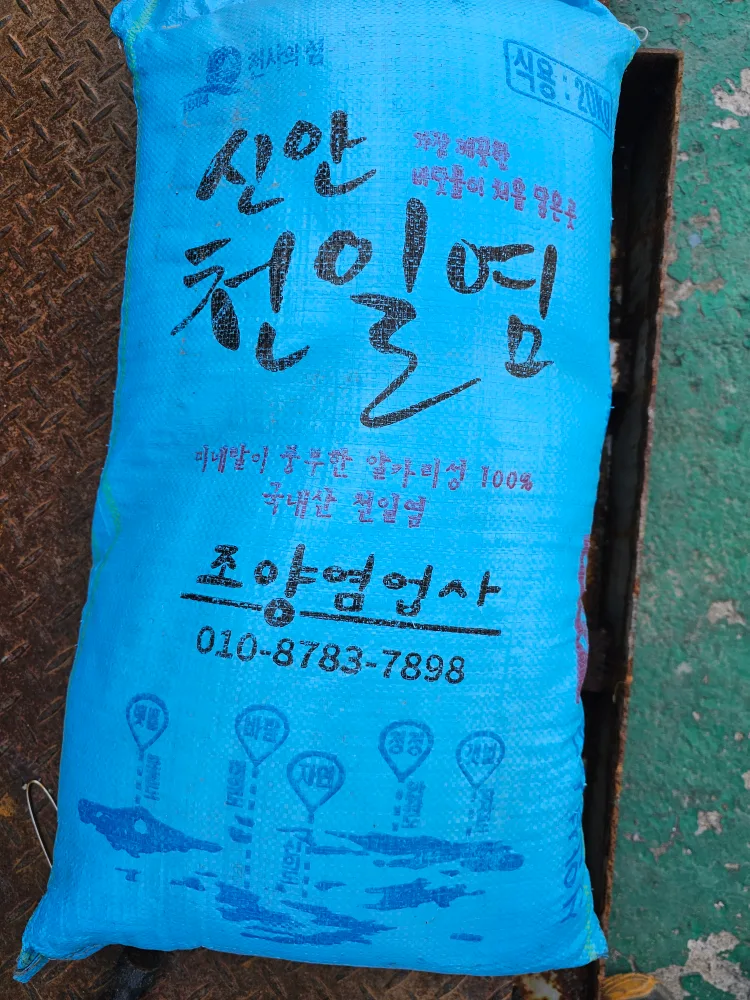 천사의 섬
1004
식용 : 20KG
신안
가장 깨끗한
바닷물이 처음 닿은곳
천일염
미네랄이 풍부한 알카리성 100%
국내산 천일염
조양염업사
010-8783-7898
햇볕
바람
자연
청정
갯벌